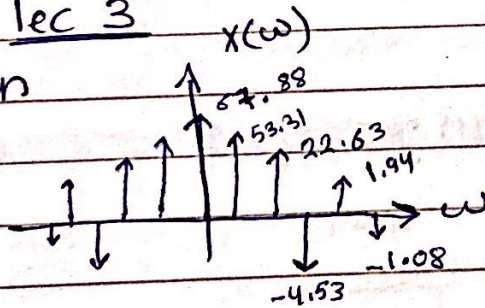 lec 3
X(ω)
n
67.88
53.31
22.63
1.94
ω
-1.08
-4.53